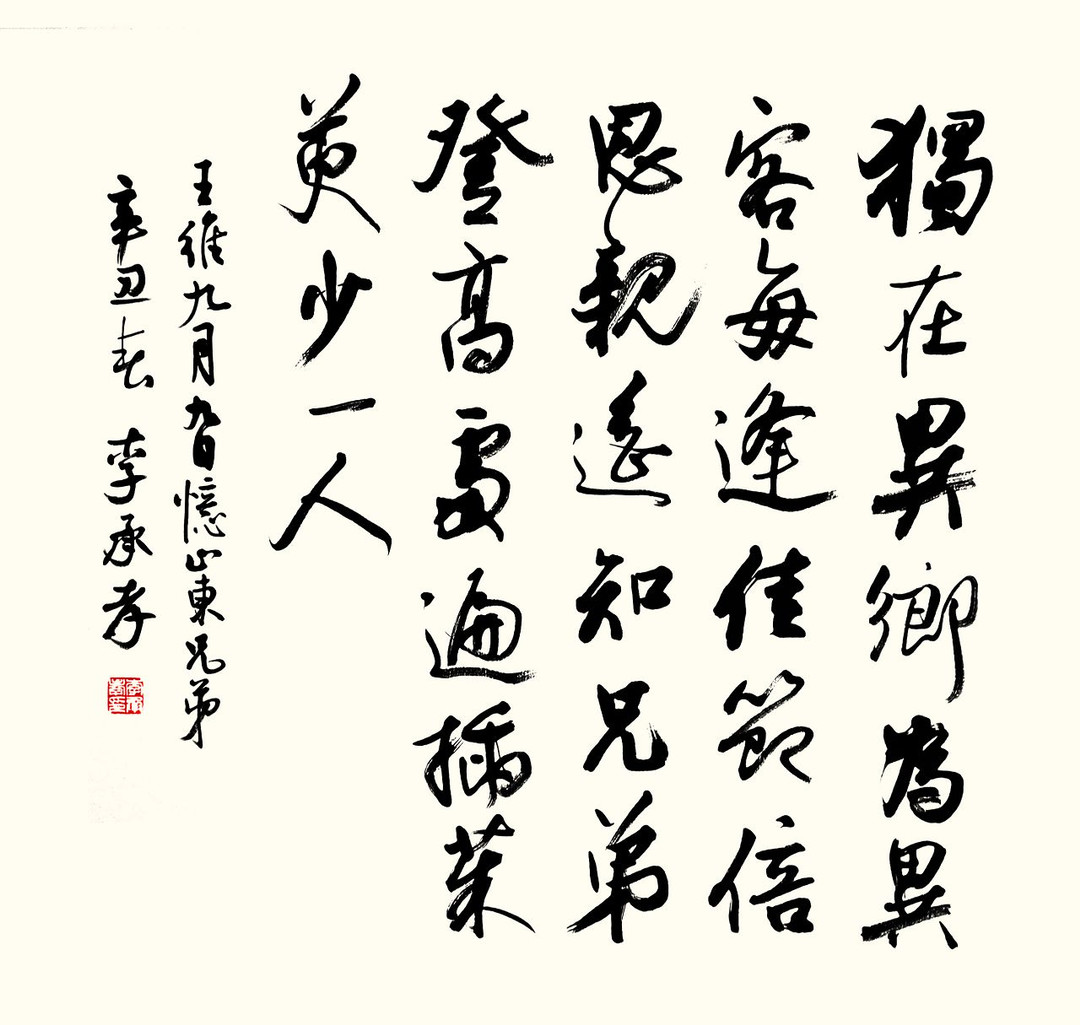 獨在異鄉為異
客每逢佳節倍
思親遥知兄弟
登高處遍插茱
萸少一人
王維九月九日憶山東兄弟
辛丑春 李承孝